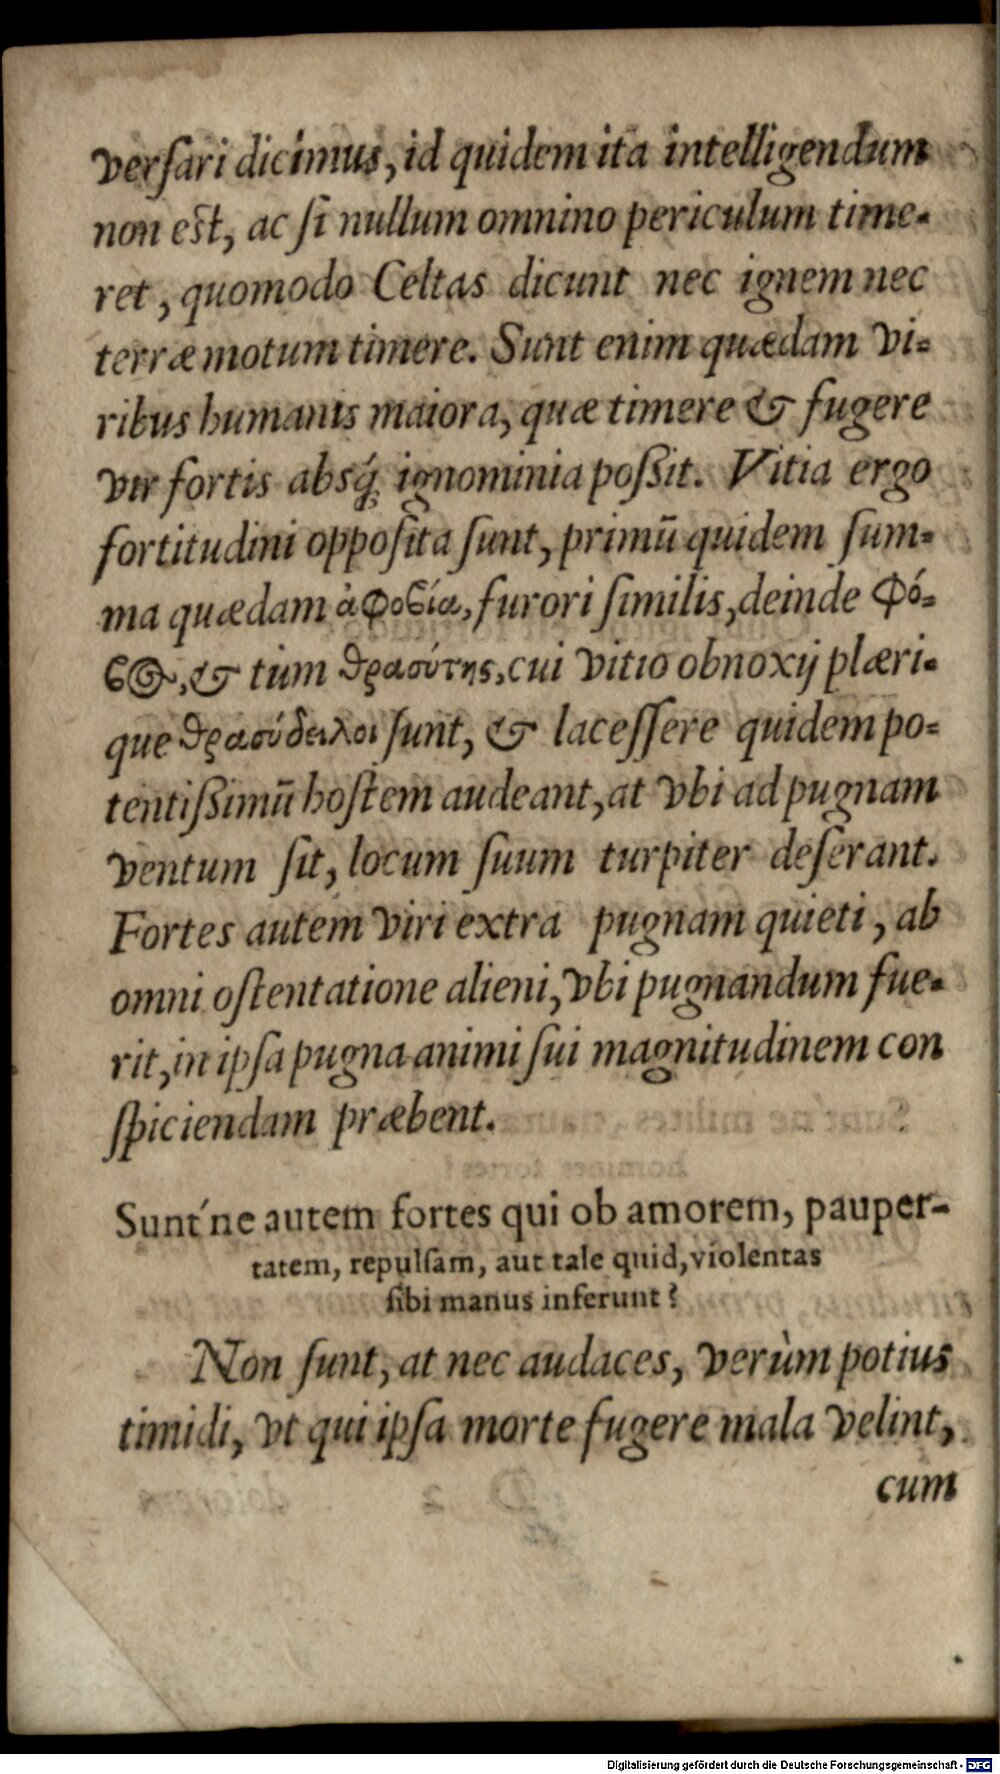 versari dicimus, id quidem ita intelligendum
non est, ac si nullum omnino periculum time-
ret, quomodo Celtas dicunt nec ignem nec
terræ motum timere. Sunt enim quædam vi-
ribus humanis maiora, quæ timere & fugere
vir fortis absq́; ignominia possit. Vitia ergo
fortitudini opposita sunt, primū quidem sum-
ma quædam ἀφοβία, furori similis, deinde φό-
βος, & tum θρασύτης, cui vitio obnoxij plæri-
que θρασύδειλοι sunt, & lacessere quidem po-
tentissimū hostem audeant, at vbi ad pugnam
ventum sit, locum suum turpiter deserant.
Fortes autem viri extra pugnam quieti, ab
omni ostentatione alieni, vbi pugnandum fue-
rit, in ipsa pugna animi sui magnitudinem con
spiciendam præbent.
Sunt'ne autem fortes qui ob amorem, pauper-
tatem, repulsam, aut tale quid, violentas
sibi manus inferunt?
Non sunt, at nec audaces, verùm potius
timidi, vt qui ipsa morte fugere mala velint,
cum
Digitalisierung gefördert durch die Deutsche Forschungsgemeinschaft - DFG